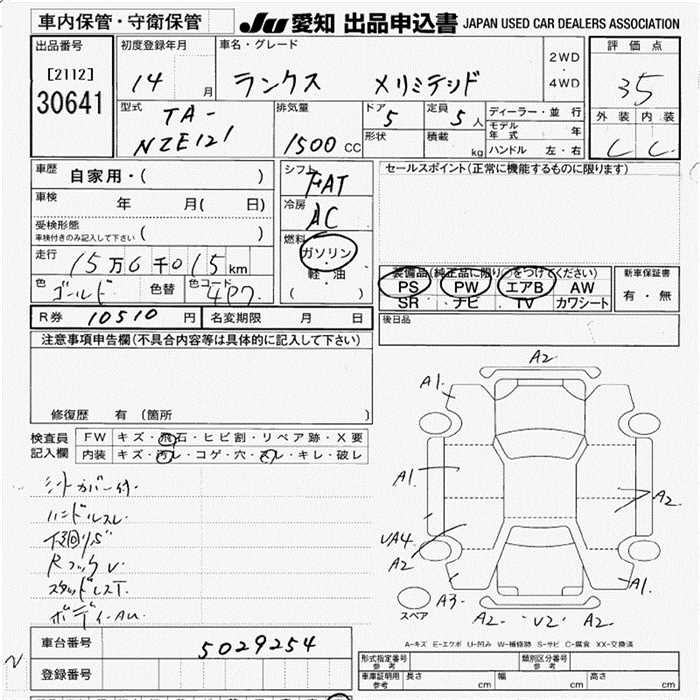 車内保管・守衛保管
JU 愛知 出品申込書 JAPAN USED CAR DEALERS ASSOCIATION
出品番号
[2112]
30641
初度登録年月
14 月
車名・グレード
ランクス リミテッド
2WD
・
4WD
評価点
35
外装 内装
C C
型式
TA-
NZE121
排気量
1500 CC
ドア
5
定員
5 人
形状
積載
kg
ディーラー・並行
モデル年式 年
ハンドル 左・右
車歴
自家用・( )
車検
年 月( 日)
受検形態
車検付きのみ記入して下さい ( )
走行
15万6千015km
色
ゴールド
色替
色コード
4P7
シフト
FAT
冷房
AC
燃料
ガソリン
軽・油
( )
セールスポイント(正常に機能するものに限ります)
装備品(純正品に限り○をつけてください)
PS PW エアB AW
SR ナビ TV カワシート
新車保証書
有・無
後日品
R券 10510 円
名変期限 月 日
注意事項申告欄(不具合内容等は具体的に記入して下さい)
修復歴 有 (箇所 )
検査員
記入欄
FW キズ・飛石・ヒビ割・リペア跡・X要
内装 キズ・汚レ・コゲ・穴・スレ・キレ・破レ
シートカバー付.
ハンドルスレ
下廻りS
スタッドレスT.
ボディーAU.
A2
A1.
A1.
A2
UA4
A2
A3-
A1.
スペア
A2- U2- A2-
A-キズ E-エクボ U-凹み W-補修跡 S-サビ C-腐食 XX-交換済
車台番号
5029254
登録番号
N
形式指定番号
参考
類別区分番号
参考
車庫証明用
参考
長さ cm 幅 cm 高さ cm